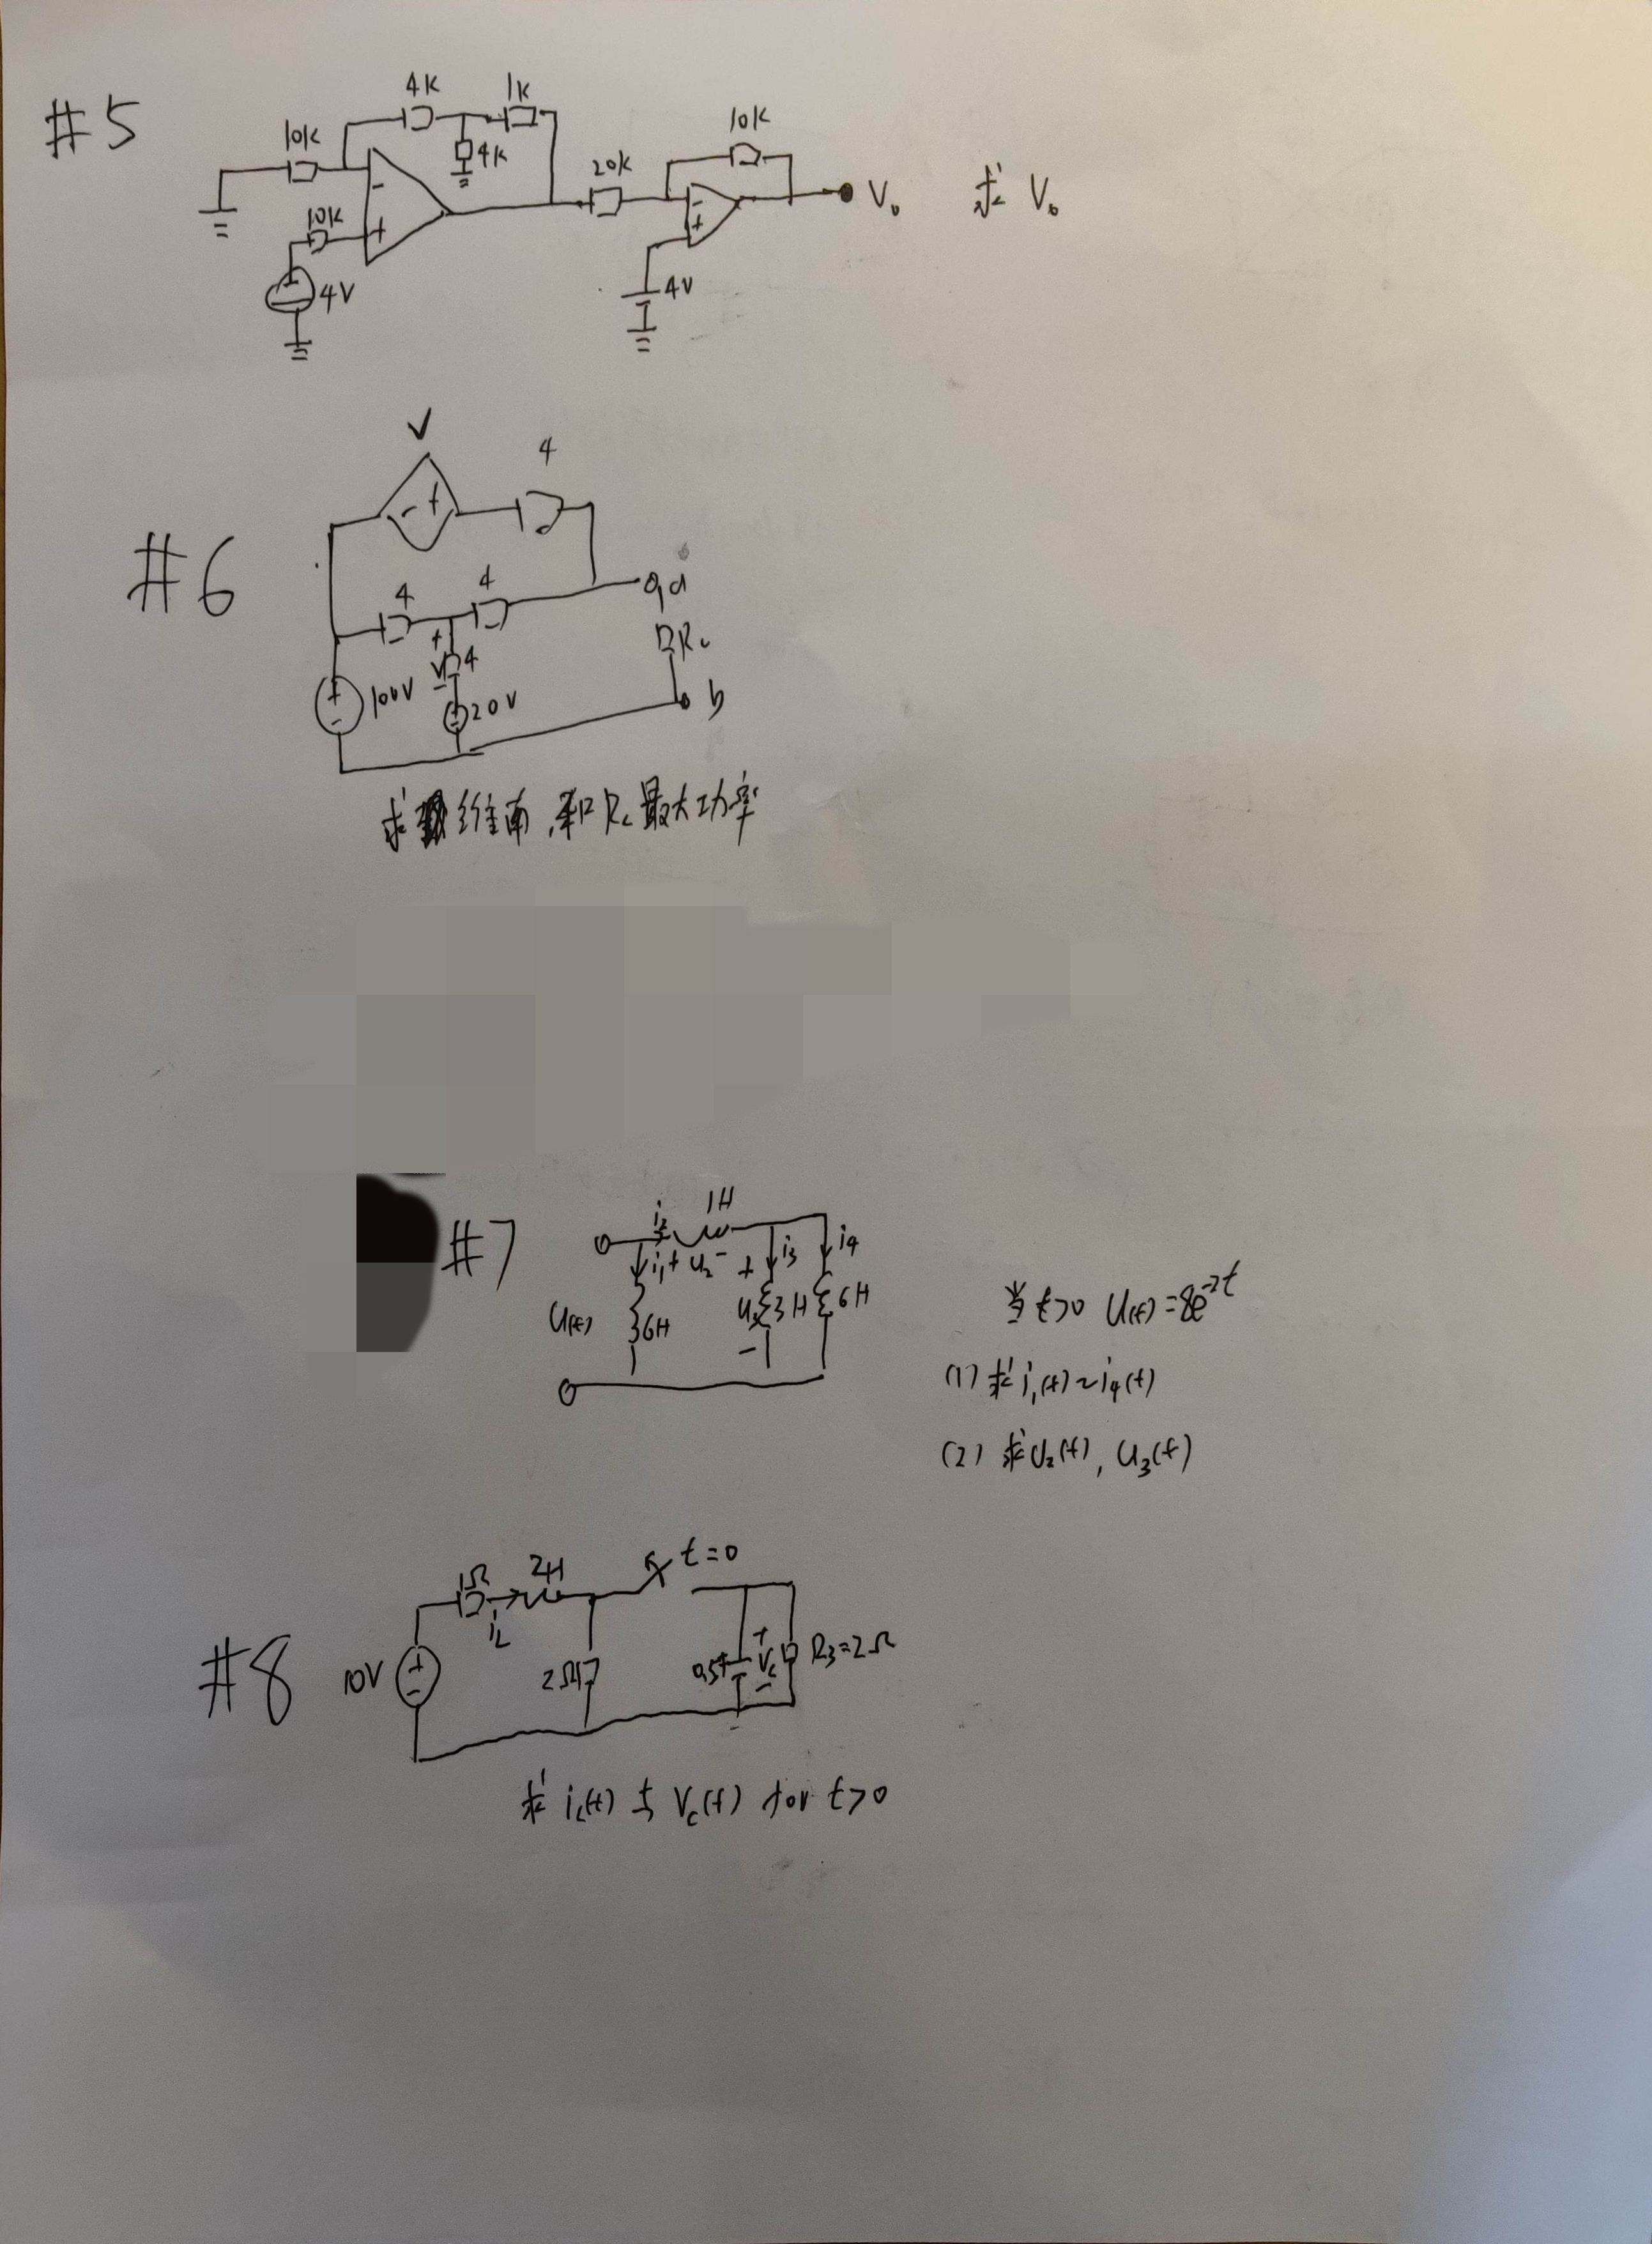 #5
4K 1K
10K 4K
10K
4V
20K
10K
V₀ 求 V₀
4V
#6
V 4
- +
4 4 a
+ V - 4
+ - 100V 20V
b
求 维南,和 R_L 最大功率
#7
i₂ 1H
i₁ + u₂ - i₃ i₄
U(t) 6H + u₃ - 3H 6H
当 t>0 U(t)=8e⁻²ᵗ
(1) 求 i₁(t)~i₄(t)
(2) 求 U₂(t), U₃(t)
#8
1Ω 2H t=0
i_L
10V + - 2Ω 0.5F + V_c - R₃=2Ω
求 i_L(t) 与 V_c(t) for t>0